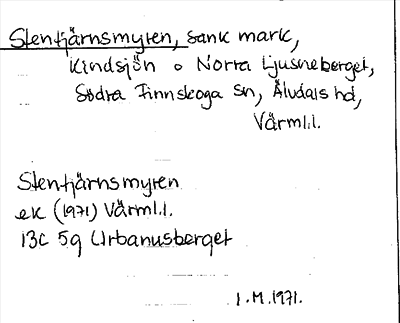 Stentjärnsmyren, sank mark,
Kindsjön o Norra Ljusneberget,
Södra Finnskoga sn, Älvdals hd,
Värml.l.
Stentjärnsmyren
ek (1971) Värml.l.
13C 5g Urbanusberget
I.M.1971.